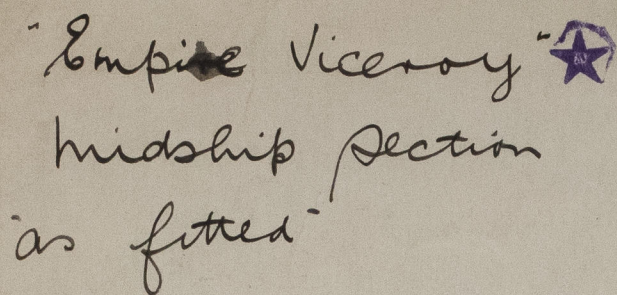 "Empire Viceroy"
Midship Section
"as fitted"